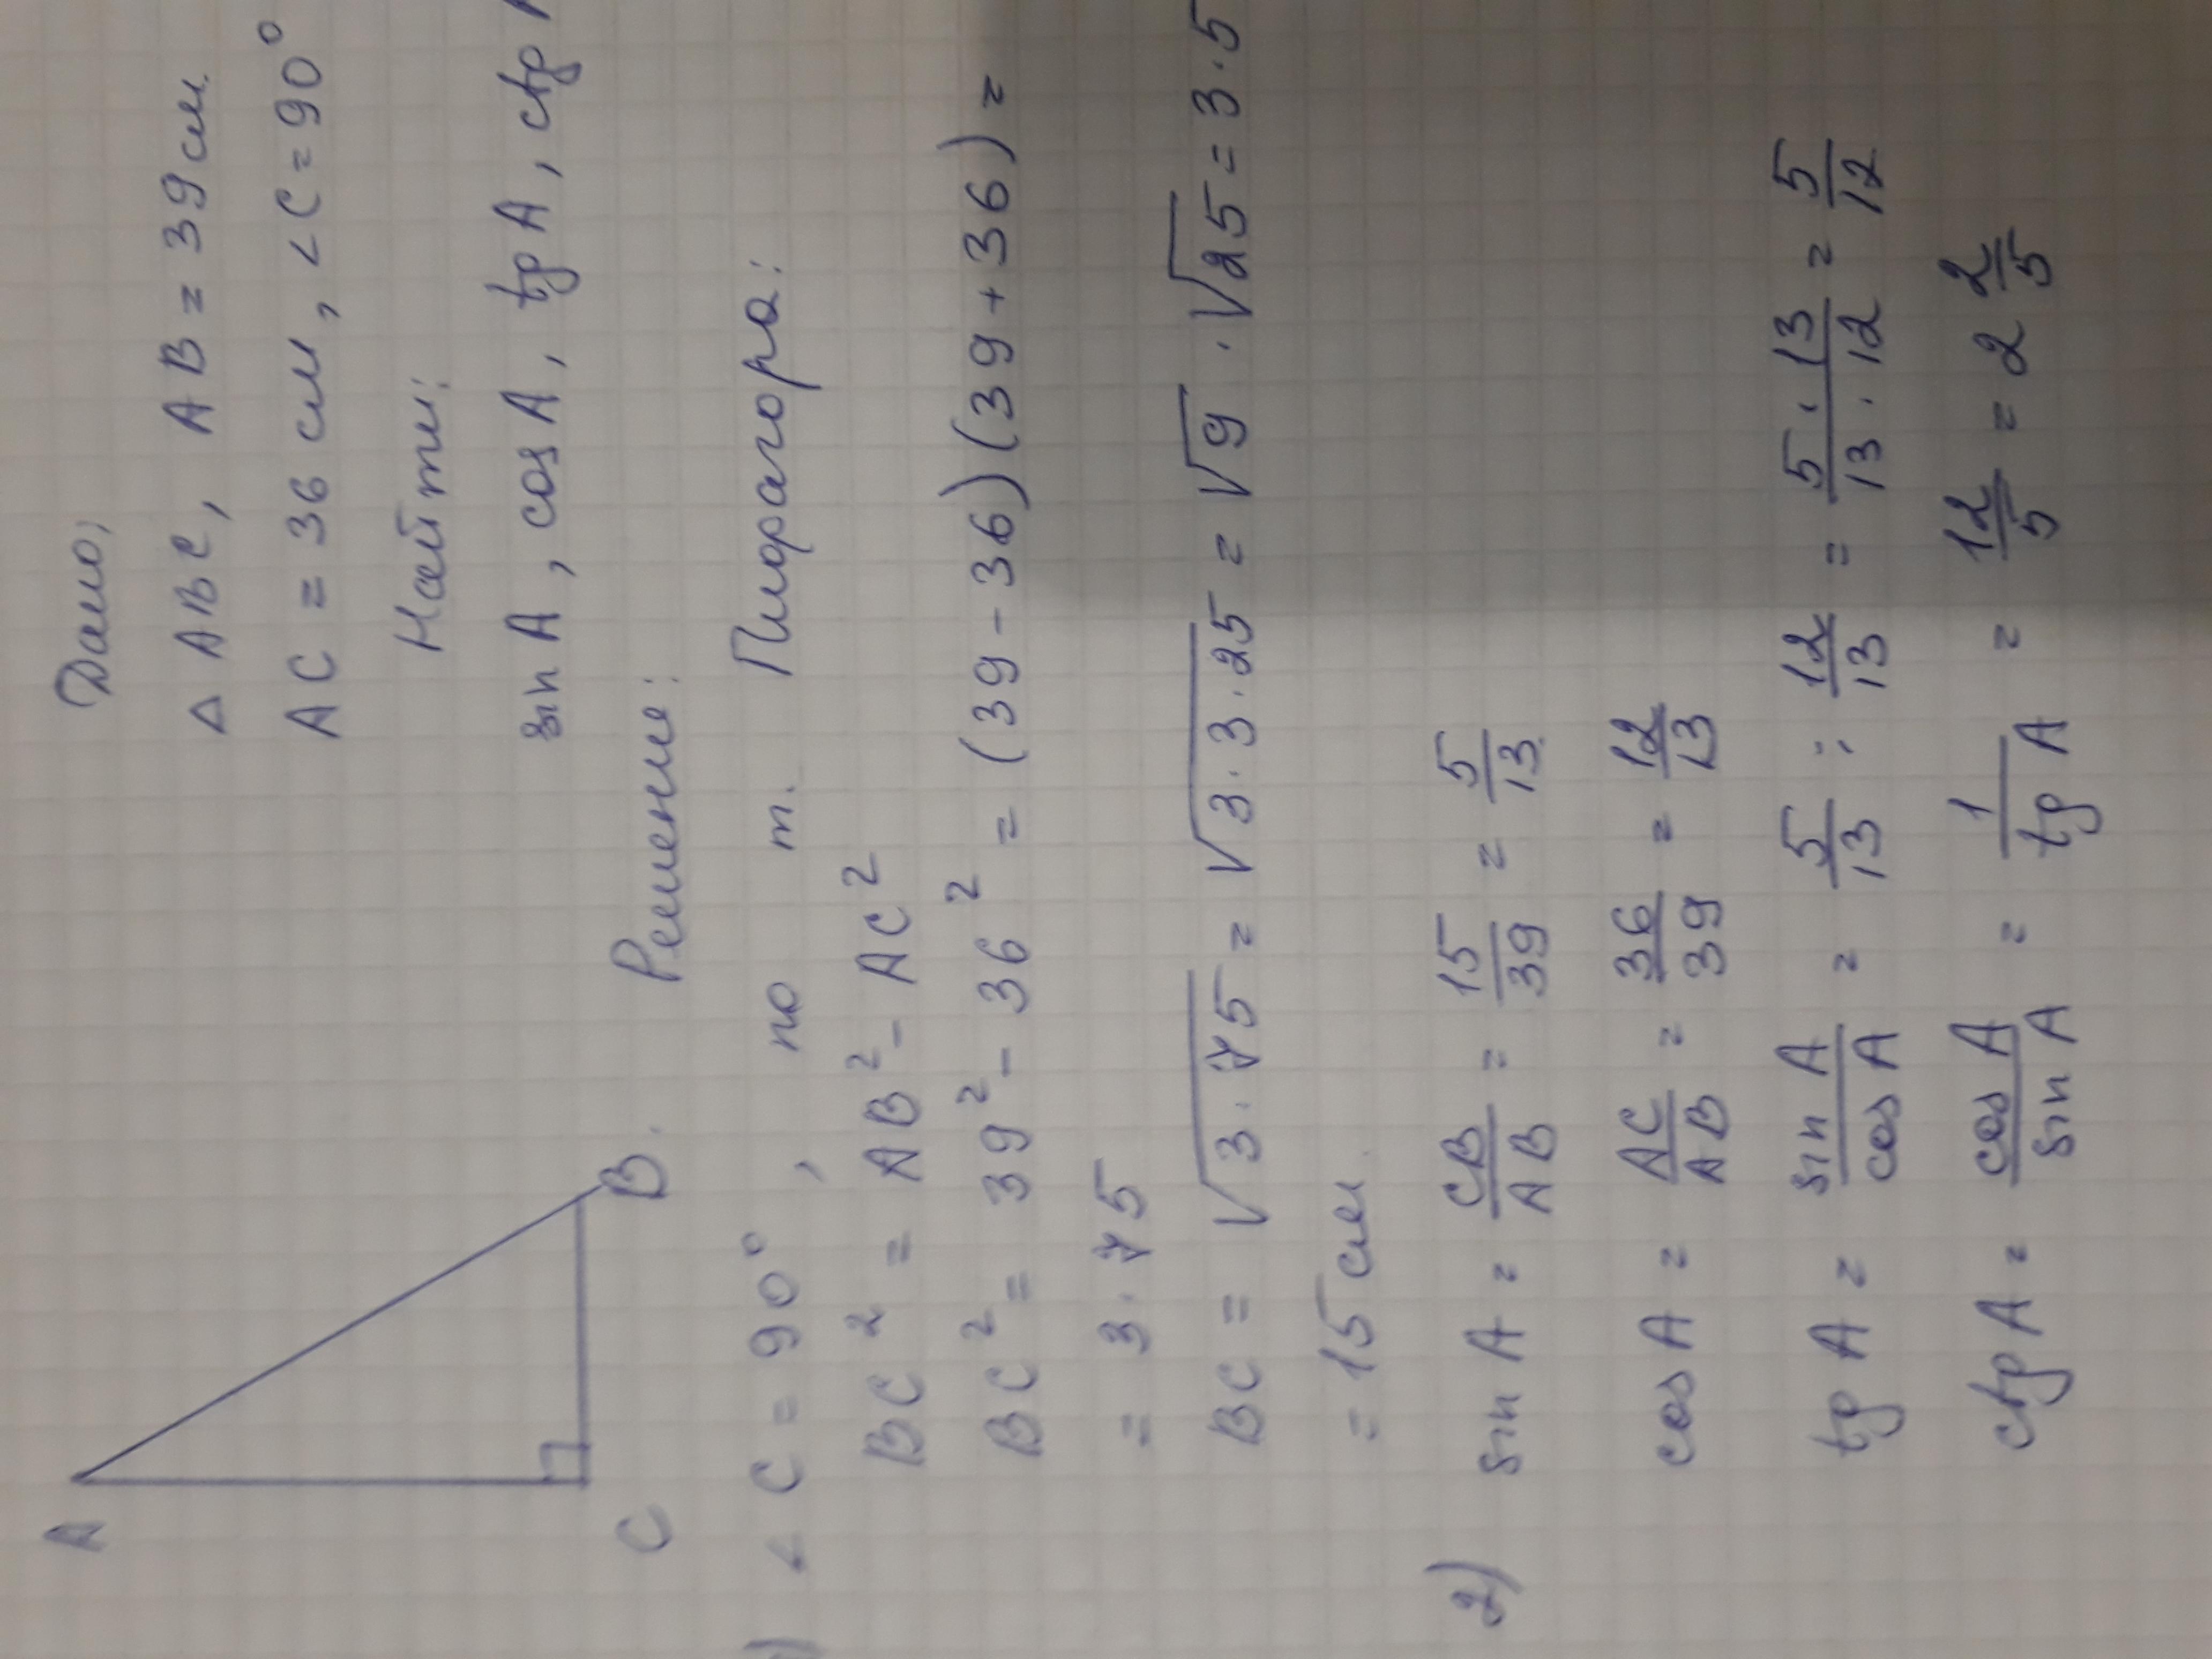 Дано:
△ ABC, AB = 39 см
AC = 36 см, ∠C = 90°
Найти:
sin A, cos A, tg A, ctg
A
C
B
Решение:
) ∠ C = 90°, по т. Пифагора:
BC² = AB² - AC²
BC² = 39² - 36² = (39 - 36)(39 + 36) =
= 3 · 75
BC = √3 · 75 = √3 · 3 · 25 = √9 · √25 = 3 · 5
= 15 см.
2) sin A = CB/AB = 15/39 = 5/13
cos A = AC/AB = 36/39 = 12/13
tg A = sin A/cos A = 5/13 : 12/13 = 5 · 13/13 · 12 = 5/12
ctg A = cos A/sin A = 1/tg A = 12/5 = 2 2/5